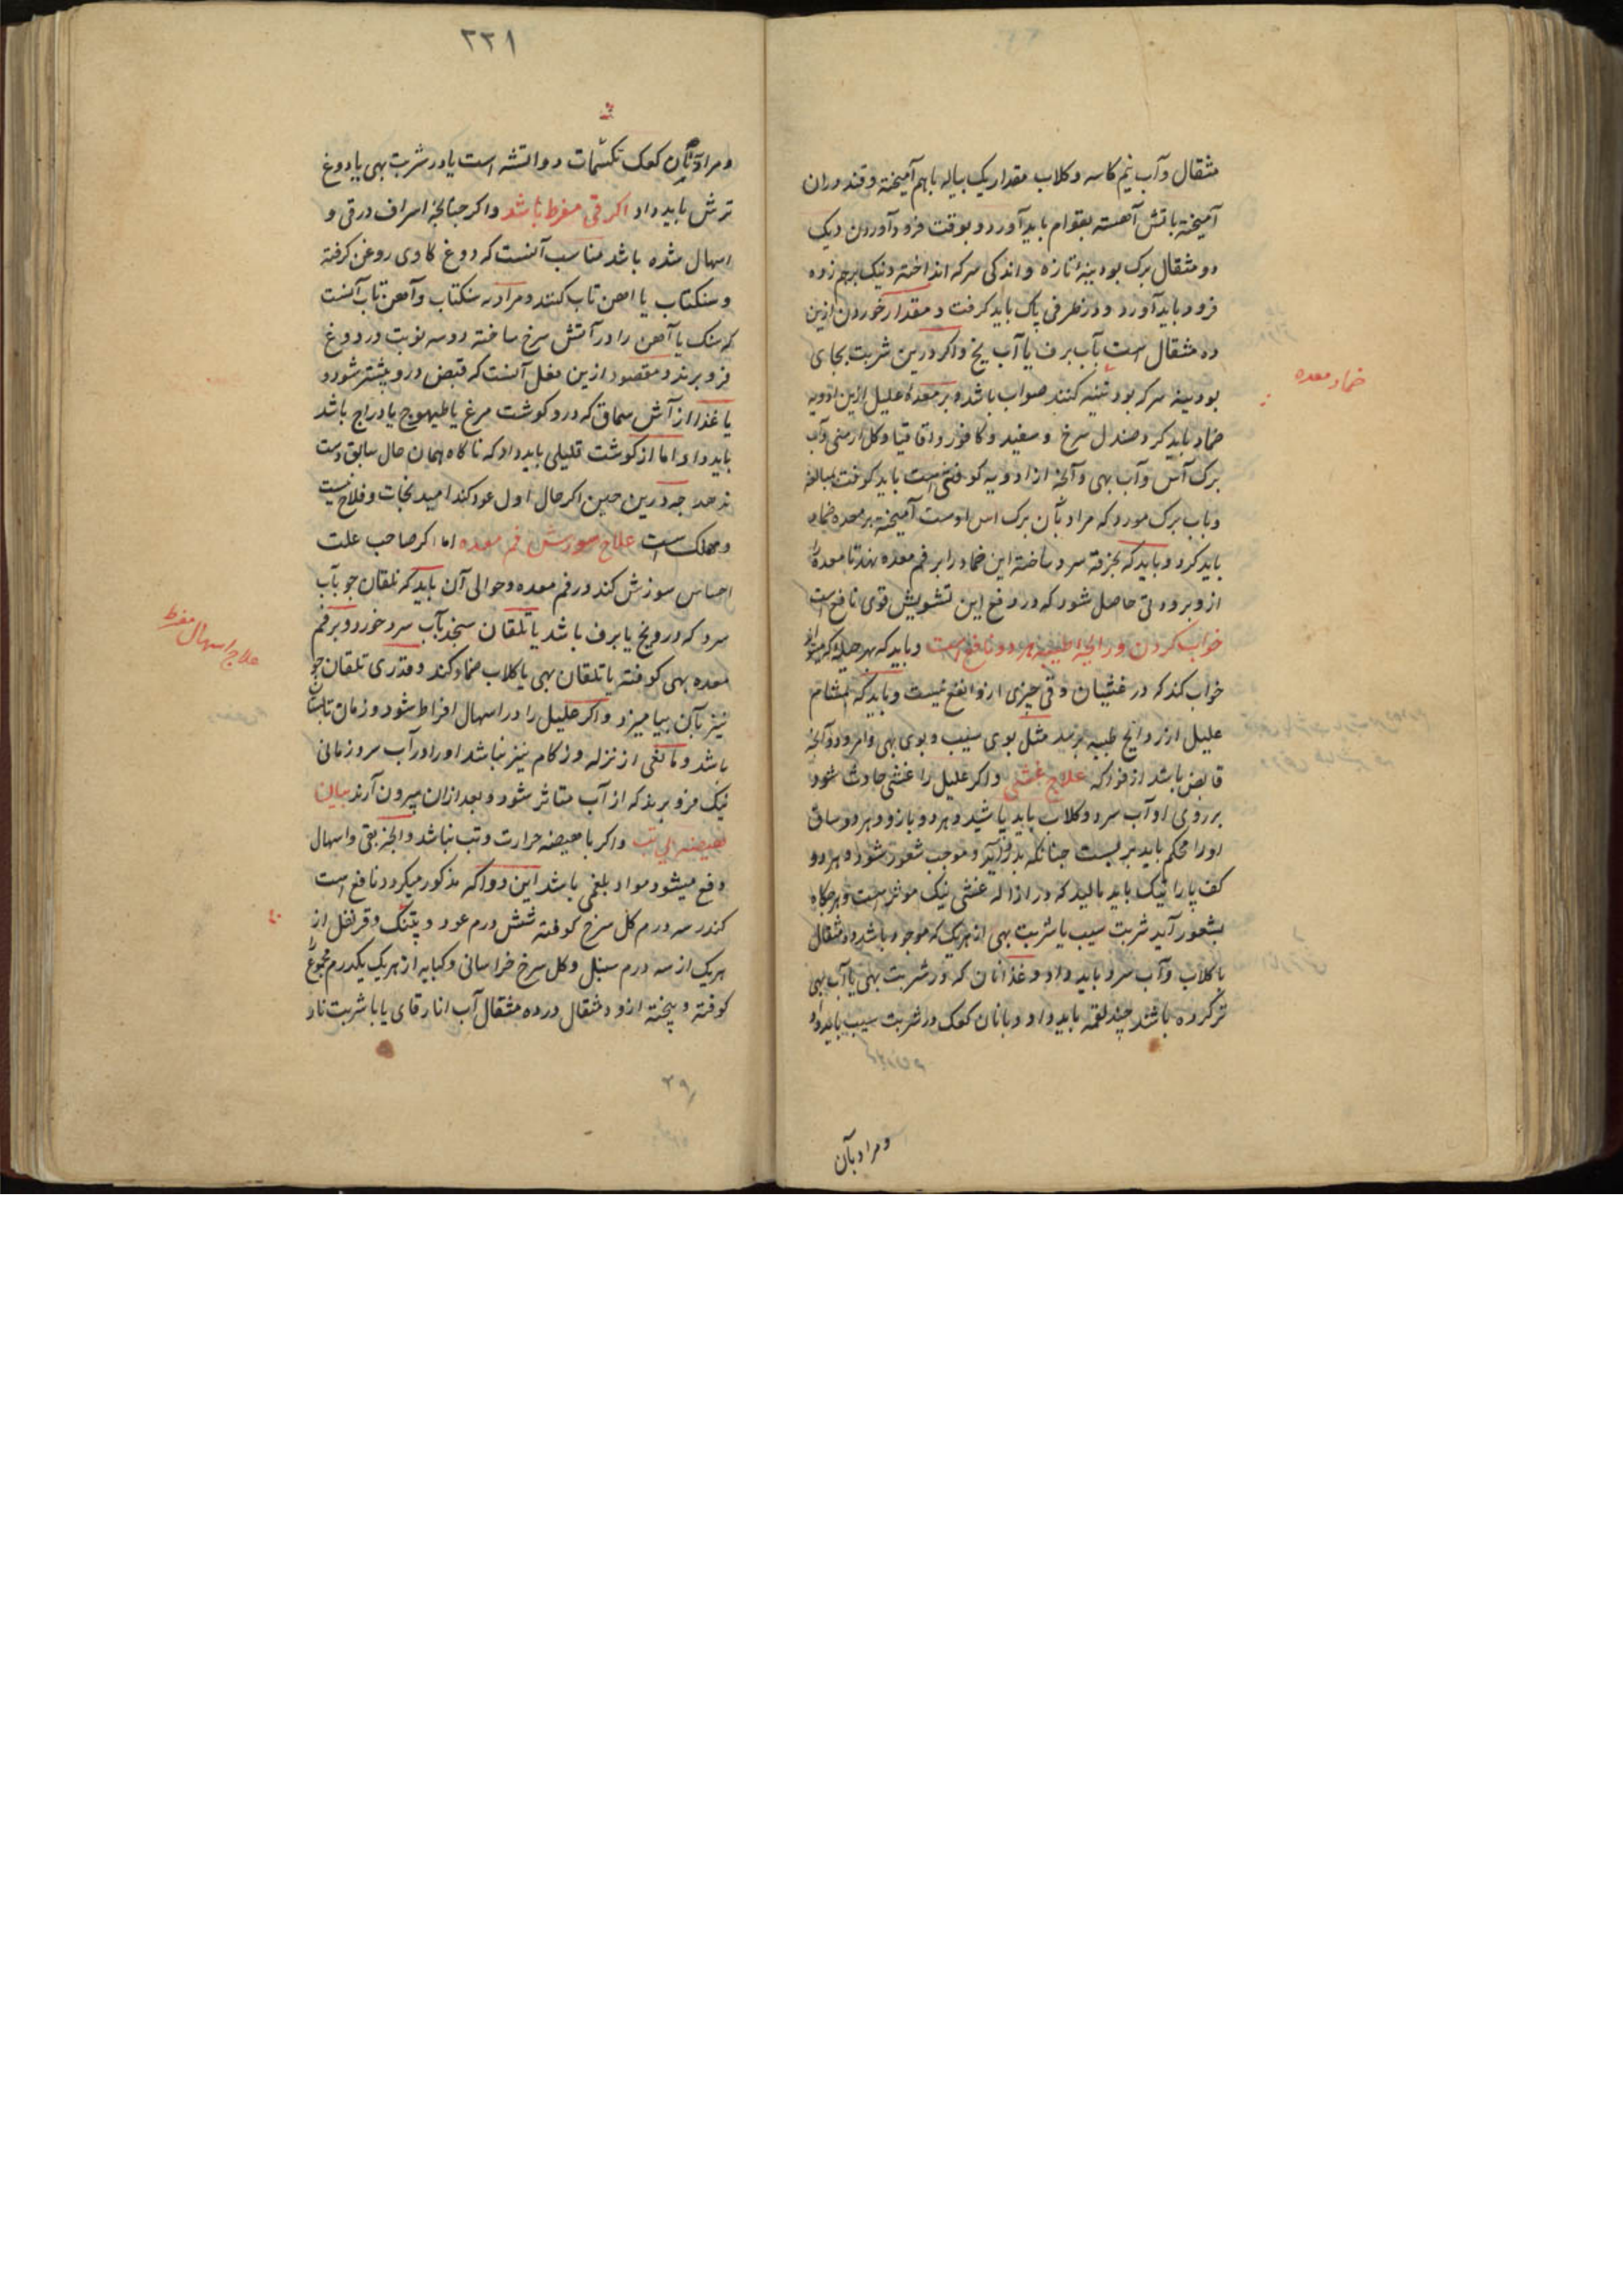 مثقال وآب نیم کاسه وکلاب مقدار یک پیاله باهم آمیخته وقند دران
آمیخته باتش آهسته بقوام باید آورد و بوقت فرود آوردن دیک
دو مثقال برک بودینهٔ تازه واندکی سرکه انداخته ونیک برهم زده
فرود باید آورد ودر ظرفی پاک باید کرفت ومقدار خوردن ازین
ده مثقال است بآب برف یا آب یخ واکر درین شربت بجای
بودینه سرکه بود کنند صواب باشد وبر معدهٔ علیل ازین ادویه
ضماد باید کرد صندل سرخ وسفید وکافور واقاقیا وکل ارمنی وآب
برک آس وآب بهی وآنچه از ادویه کوفتنی است باید کوفت بمبالغه
وباب برک مورد که مراد بآن برک آس اوست آمیخته بر معده ضماد
باید کرد وباید که بخرقه سرد ساخته این ضماد را بر فم معده نهند تا معده را
ازو برودتی حاصل شود که در دفع این تشویش قوی نافع است
خواب کردن ورایحه اطیبه هر دو نافع است وباید که بهر حیله که میتواند
خواب کند که در غثیان وقی چیزی ازو انفع نیست وباید که بمشام
علیل از روایح طیبه برسد مثل بوی سیب وبوی بهی وامرود وآنچه
قابض باشد از فواکه علاج غشی واکر علیل را غشی حادث شود
بر روی او آب سرد وکلاب باید پاشید وهر دو بازو وهر دو ساق
او را محکم باید بر بست چنانکه بدرد آید وموجب شعور شود وهر دو
کف پا را نیک باید مالید که در ازاله غشی نیک موثر است وهر کاه
بشعور آید شربت سیب یا شربت بهی از هر یک که موجود باشد دو مثقال
با کلاب وآب سرد باید داد وغذا نان که در شربت بهی یا آب بهی
تر کرده باشند چند لقمه باید داد ویا نان کعک در شربت سیب باید داد
ومراد بآن
ضماد معده
٢٢١
ومراد بآن کعک تکشمات دواتشه است یا در شربت بهی یا دوغ
ترش باید داد اکر قی مفرط باشد واکر چنانچه اسراف در قی و
اسهال شده باشد مناسب آنست که دوغ کاوی روغن کرفته
وسنکتاب یا اهن تاب کنند ومراد به سنکتاب وآهن تاب آنست
که سنک یا آهن را در آتش سرخ ساخته دو سه نوبت در دوغ
فرو برند ومقصود ازین فعل آنست که قبض درو بیشتر شود و
یا غذا از آش سماق که درو کوشت مرغ یا طیهوج یا دراج باشد
باید داد اما از کوشت قلیلی باید داد که ناکاه همان حال سابق دست
ندهد چه درین حین اکر حال اول عود کند امید نجات وفلاح نیست
ومهلک است علاج سوزش فم معده اما اکر صاحب علت
احساس سوزش کند در فم معده وحوالی آن باید که تلقان جو بآب
سرد که درو یخ یا برف باشد یا تلقان سنجد بآب سرد خورد وبر فم
معده بهی کوفته یا تلقان بهی با کلاب ضماد کند وقدری تلقان جو
نیز بآن بیامیزد واکر علیل را در اسهال افراط شود وزمان تابستان
باشد ومانعی از نزله وزکام نیز نباشد او را در آب سرد زمانی
نیک فرو برند که از آب متاثر شود وبعد ازان بیرون آرند بیان
هیضه بی تب واکر با هیضه حرارت وتب نباشد وآنچه بقی واسهال
دفع میشود مواد بلغمی باشد این دوا که مذکور میکردد نافع است
کندر سه درم کل سرخ کوفته شش درم عود و پتنک وقرنفل از
هر یک از سه درم سنبل وکل سرخ خراسانی وکبابه از هر یک یکدرم مجموع
کوفته وبیخته ازو دو مثقال در ده مثقال آب انار یا با شربت نار
علاج اسهال مفرط
٢٩